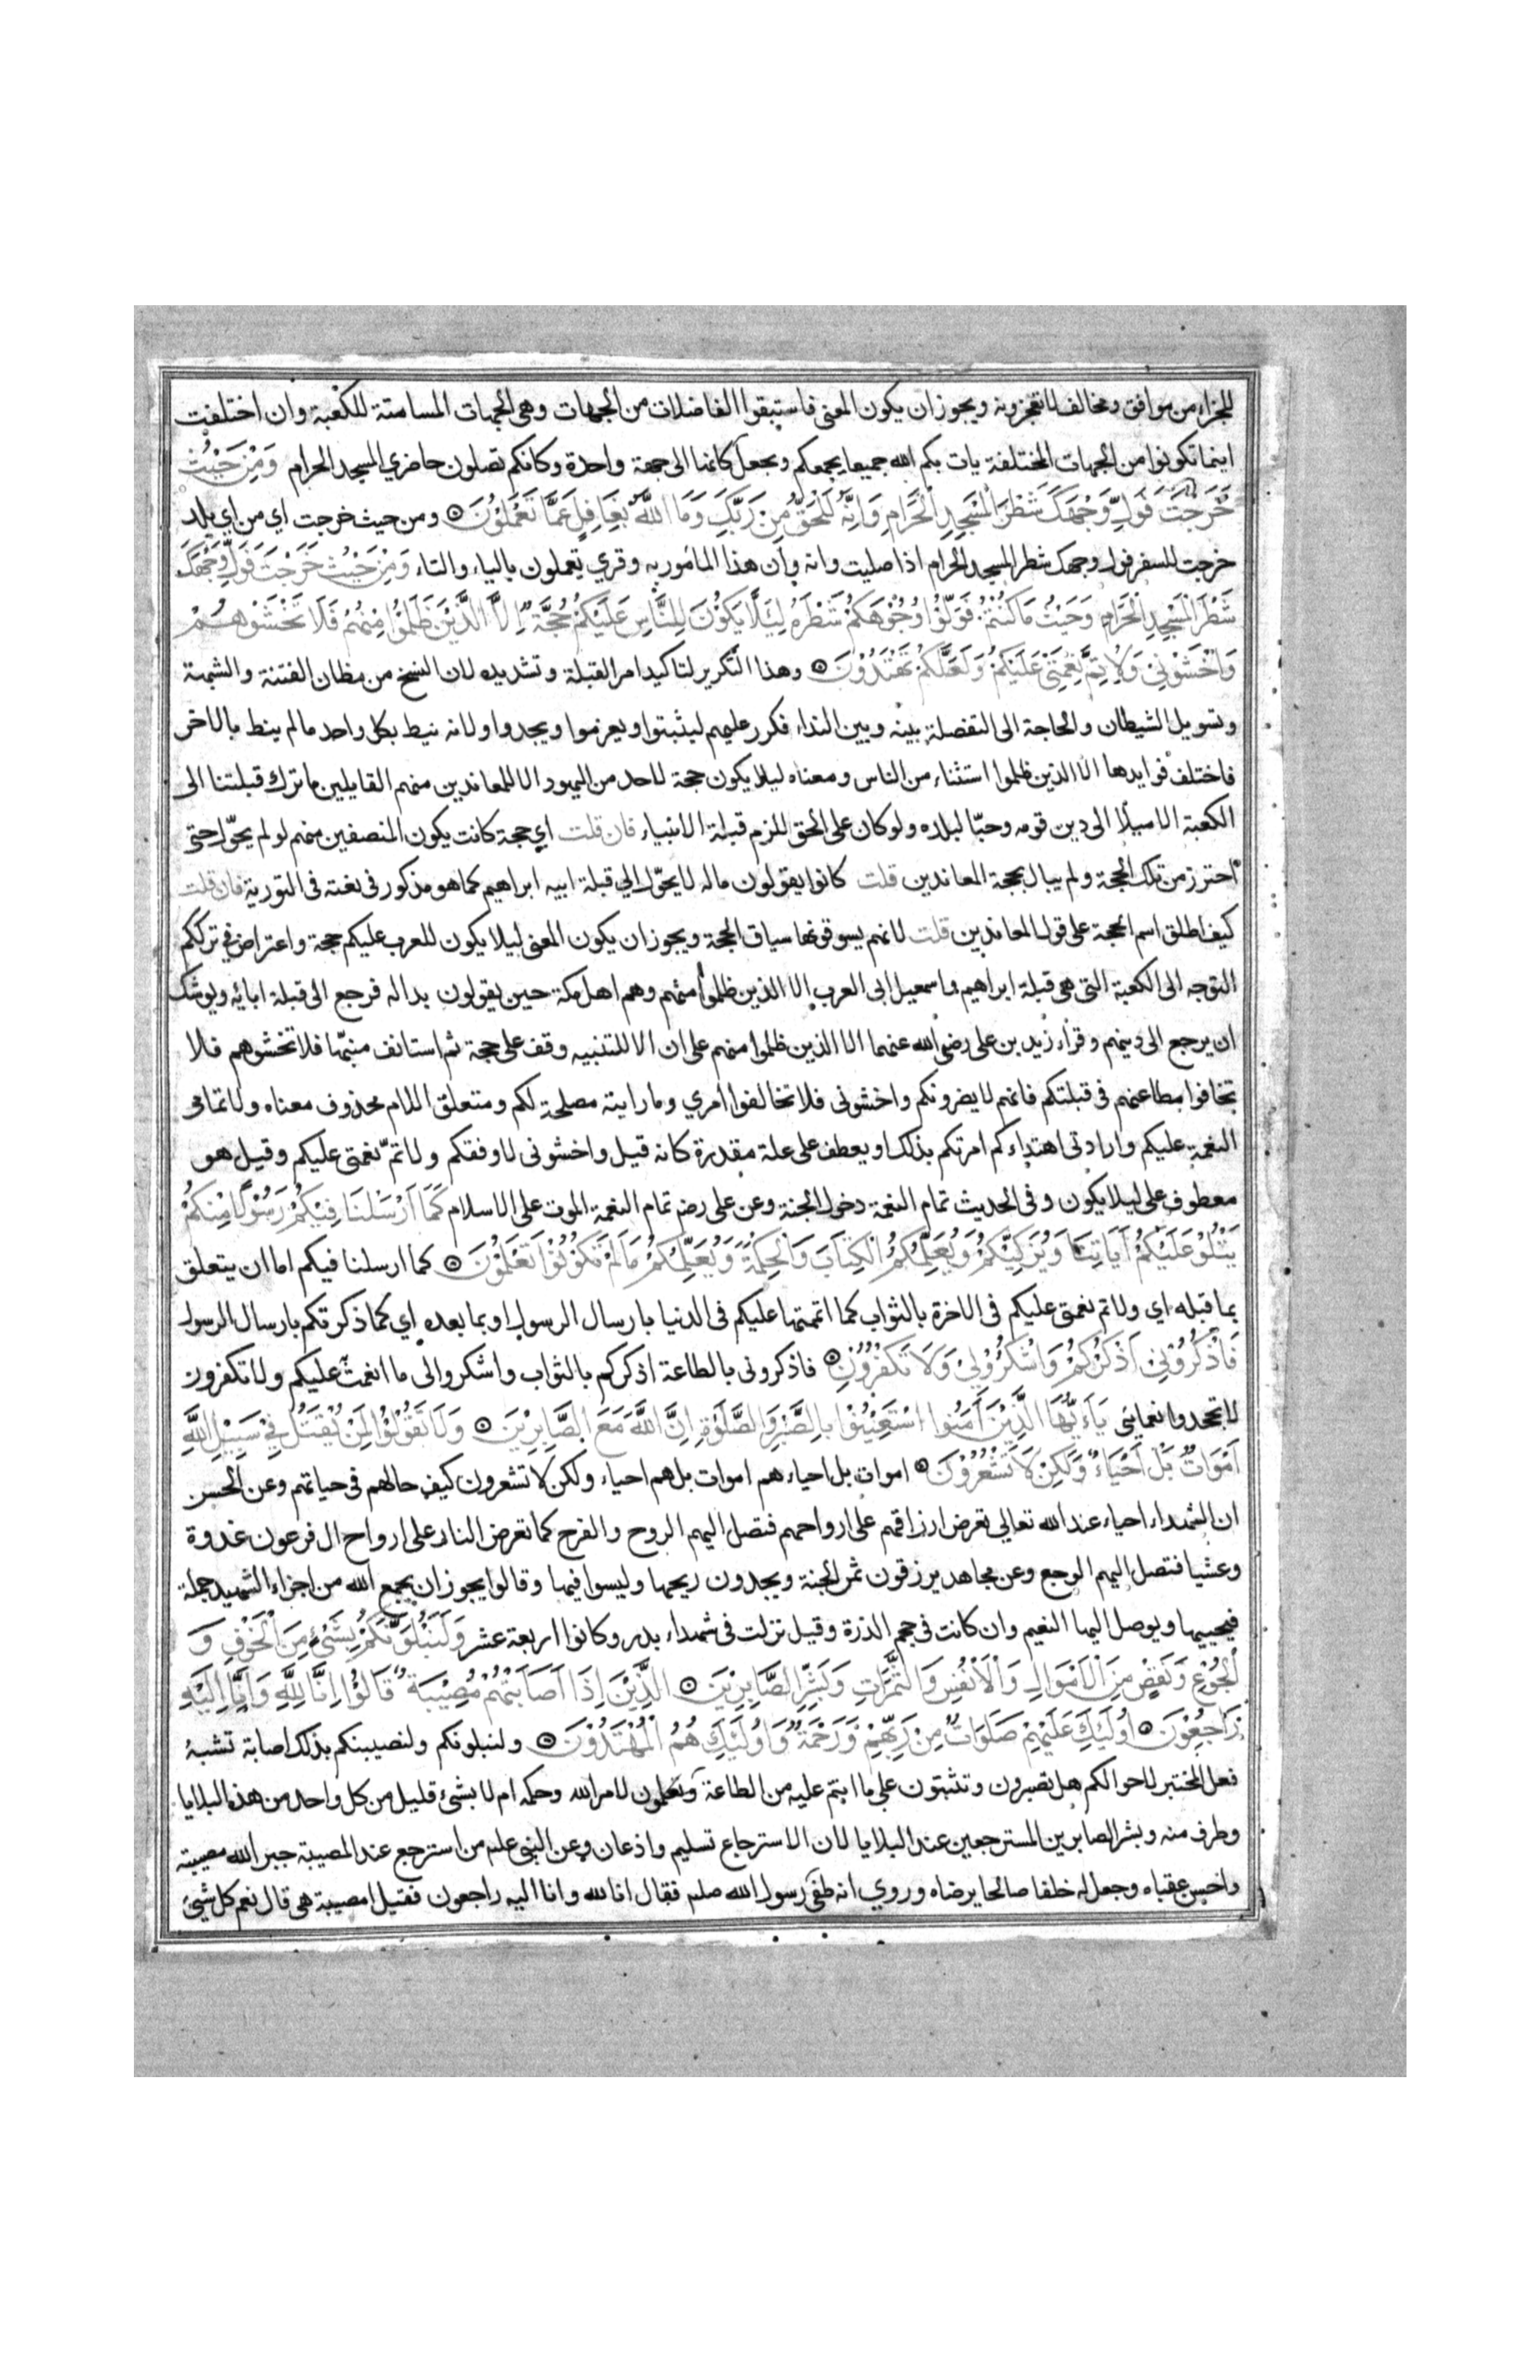 للجزاء من موافق ومخالف لا تعجزونه ويجوز ان يكون المعنى فاستبقوا الفاضلات من الجهات وهي الجهات المسامتة للكعبة وان اختلفت
اينما تكونوا من الجهات المختلفة يات بكم الله جميعا يجمعكم ويجعل كانها الى جهة واحدة وكانكم تصلون حاضري المسجد الحرام وَمِنْ حَيْثُ
خَرَجْتَ فَوَلِّ وَجْهَكَ شَطْرَ الْمَسْجِدِ الْحَرَامِ وَاِنَّهُ لَلْحَقُّ مِنْ رَبِّكَ وَمَا اللَّهُ بِغَافِلٍ عَمَّا تَعْمَلُوْنَ ومن حيث خرجت اي من اي بلد
خرجت للسفر فول وجهك شطر المسجد الحرام اذا صليت وانه وان هذا المأمور به وقري يعملون بالياء والتاء وَمِنْ حَيْثُ خَرَجْتَ فَوَلِّ وَجْهَكَ
شَطْرَ الْمَسْجِدِ الْحَرَامِ وَحَيْثُ مَا كُنْتُمْ فَوَلُّوْا وُجُوْهَكُمْ شَطْرَهُ لِيَلَّا يَكُوْنَ لِلنَّاسِ عَلَيْكُمْ حُجَّةٌ اِلَّا الَّذِيْنَ ظَلَمُوْا مِنْهُمْ فَلَا تَخْشَوْهُمْ
وَاخْشَوْنِيْ وَلِاُتِمَّ نِعْمَتِيْ عَلَيْكُمْ وَلَعَلَّكُمْ تَهْتَدُوْنَ وهذا التكرير لتاكيد امر القبلة وتشديده لان النسخ من مظان الفتنة والشبهة
وتسويل الشيطان والحاجة الى التفصلة بينه وبين النداء فكرر عليهم ليثبتوا ويعزموا ويجدوا ولانه نيط بكل واحد ما لم ينط بالاخر
فاختلف فوايدها الا الذين ظلموا استثناء من الناس ومعناه ليلا يكون حجة لاحد من اليهود الا للمعاندين منهم القايلين ما ترك قبلتنا الى
الكعبة الا ميلا الى دين قومه وحبّا لبلده ولو كان على الحق للزم قبلة الانبياء فان قلت اي حجة كانت يكون المنصفين منهم لو لم يحوّل حتى
احترز من تلك الحجة ولم يبال بحجة المعاندين قلت كانوا يقولون ما له لا يحوّل الي قبلة ابيه ابراهيم كما هو مذكور في نعته في التورية فان قلت
كيف اطلق اسم الحجة على قول المعاندين قلت لانهم يسوقونها سياق الحجة ويجوز ان يكون المعنى ليلا يكون للعرب عليكم حجة واعتراض في ترككم
التوجه الى الكعبة التي هي قبلة ابراهيم واسمعيل ابي العرب الا الذين ظلموا منهم وهم اهل مكة حين يقولون بدا له فرجع الى قبلة ابائه ويوشك
ان يرجع الى دينهم وقراء زيد بن على رضي الله عنهما الا الذين ظلموا منهم على ان الا للتنبيه وقف على حجة ثم استانف منبّها فلا تخشوهم فلا
تخافوا مطاعنهم في قبلتكم فانهم لا يضرونكم واخشوني فلا تخالفوا امري وما رايته مصلحة لكم ومتعلق اللام محذوف معناه ولاتمامي
النعمة عليكم وارادتي اهتداءكم امرتكم بذلك او يعطف على علة مقدرة كانه قيل واخشوني لاوفقكم ولاتمّ نعمتي عليكم وقيل هو
معطوف على ليلا يكون وفي الحديث تمام النعمة دخول الجنة وعن على رضه تمام النعمة الموت على الاسلام كَمَا اَرْسَلْنَا فِيْكُمْ رَسُوْلًا مِنْكُمْ
يَتْلُوْ عَلَيْكُمْ اٰيَاتِنَا وَيُزَكِّيْكُمْ وَيُعَلِّمُكُمُ الْكِتَابَ وَالْحِكْمَةَ وَيُعَلِّمُكُمْ مَا لَمْ تَكُوْنُوْا تَعْلَمُوْنَ كما ارسلنا فيكم اما ان يتعلق
بما قبله اي ولاتم نعمتي عليكم في الاخرة بالثواب كما اتممتها عليكم في الدنيا بارسال الرسول او بما بعده اي كما ذكرتكم بارسال الرسول
فَاذْكُرُوْنِيْ اَذْكُرْكُمْ وَاشْكُرُوْا لِيْ وَلَا تَكْفُرُوْنِ فاذكروني بالطاعة اذكركم بالثواب واشكروا لى ما انعمت عليكم ولا تكفرون
لا تجحدوا نعمائي يَاءَيُّهَا الَّذِيْنَ اٰمَنُوا اسْتَعِيْنُوْا بِالصَّبْرِ وَالصَّلٰوةِ اِنَّ اللَّهَ مَعَ الصَّابِرِيْنَ وَلَا تَقُوْلُوْا لِمَنْ يُقْتَلُ فِيْ سَبِيْلِ اللَّهِ
اَمْوَاتٌ بَلْ اَحْيَاءٌ وَلٰكِنْ لَا تَشْعُرُوْنَ اموات بل احياء هم اموات بل هم احياء ولكن لا تشعرون كيف حالهم في حياتهم وعن الحسن
ان الشهداء احياء عند الله تعالى تعرض ارزاقهم على ارواحهم فتصل اليهم الروح والفرح كما تعرض النار على ارواح ال فرعون غدوة
وعشيا فتصل اليهم الوجع وعن مجاهد يرزقون ثمر الجنة ويجدون ريحها وليسوا فيها وقالوا يجوز ان يجمع الله من اجزاء الشهيد جملة
فيحييها ويوصل اليها النعيم وان كانت في حجم الذرة وقيل نزلت في شهداء بدر وكانوا اربعة عشر وَلَنَبْلُوَنَّكُمْ بِشَيْءٍ مِنَ الْخَوْفِ وَ
الْجُوْعِ وَنَقْصٍ مِنَ الْاَمْوَالِ وَالْاَنْفُسِ وَالثَّمَرَاتِ وَبَشِّرِ الصَّابِرِيْنَ الَّذِيْنَ اِذَا اَصَابَتْهُمْ مُصِيْبَةٌ قَالُوْا اِنَّا لِلّٰهِ وَاِنَّا اِلَيْهِ
رَاجِعُوْنَ اُولٰئِكَ عَلَيْهِمْ صَلَوَاتٌ مِنْ رَبِّهِمْ وَرَحْمَةٌ وَاُولٰئِكَ هُمُ الْمُهْتَدُوْنَ ولنبلونكم ولنصيبنكم بذلك اصابة تشبه
فعل المختبر لاحوالكم هل تصبرون وتثبتون على ما انتم عليه من الطاعة وتسلمون لامر الله وحكمه ام لا بشئ قليل من كل واحد من هذه البلايا
وطرف منه وبشر الصابرين المسترجعين عند البلايا لان الاسترجاع تسليم واذعان وعن النبي علم من استرجع عند المصيبة جبر الله مصيبته
واحسن عقباه وجعل له خلفا صالحا يرضاه وروي انه طفى رسول الله صلم فقال انا لله وانا اليه راجعون فقيل امصيبة هي قال نعم كل شئ